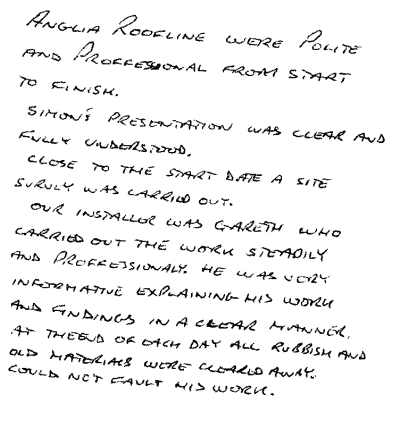 ANGLIA ROOFLINE WERE POLITE
AND PROFFESSIONAL FROM START
TO FINISH.
SIMON'S PRESENTATION WAS CLEAR AND
FULLY UNDERSTOOD.
CLOSE TO THE START DATE A SITE
SURVEY WAS CARRIED OUT.
OUR INSTALLER WAS GARETH WHO
CARRIED OUT THE WORK STEADILY
AND PROFFESSIONALY. HE WAS VERY
INFORMATIVE EXPLAINING HIS WORK
AND FINDINGS IN A CLEAR MANNER.
AT THE END OF EACH DAY ALL RUBBISH AND
OLD MATERIALS WERE CLEARED AWAY.
COULD NOT FAULT HIS WORK.